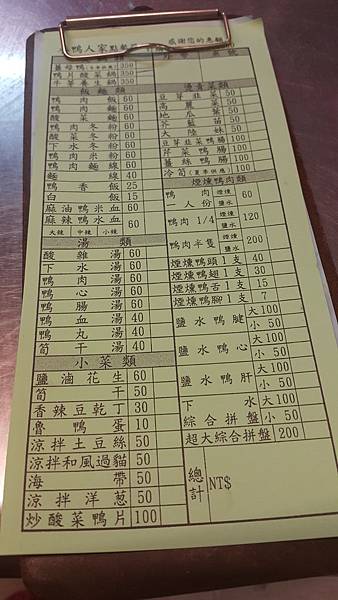 鴨人家點
感謝您的惠顧
薑母鴨(冬季供應) 350
鴨片酸菜鍋 350
牛羊養生鍋 350
飯麵類
鴨肉飯 60
鴨肉麵 60
酸菜麵 60
鴨肉冬粉 60
酸菜冬粉 60
下水冬粉 60
鴨肉米粉 60
鴨肉麵線 60
麵線 40
鴨香飯 25
白飯 15
麻油鴨米血 60
麻辣鴨水血 60
大辣 中辣 小辣
湯類
酸雜湯 60
下水湯 60
鴨肉湯 60
鴨心湯 60
鴨腸湯 60
鴨血湯 40
鴨丸湯 40
筍干湯 40
小菜類
鹽滷花生 60
筍干 50
香辣豆乾丁 30
魯鴨蛋 10
涼拌土豆絲 50
涼拌和風過貓 50
海帶 50
涼拌洋蔥 50
炒酸菜鴨片 100
燙青菜類
豆芽菜 50
高麗菜 50
地瓜葉 50
芥藍苗 50
大陸妹 50
豆芽韭菜鴨腸 100
芹菜鴨腸 100
薑絲鴨腸 100
冷筍(夏季供應) 60
煙燻鴨肉類
鴨肉人份 煙燻 鹽水 60
鴨肉1/4 煙燻 鹽水 120
鴨肉半隻 煙燻 鹽水 200
煙燻鴨頭1支 40
煙燻鴨翅1支 30
煙燻鴨舌1支 15
煙燻鴨腳1支 7
鹽水鴨腱 大100 小50
鹽水鴨心 大100 小50
鹽水鴨肝 大100 小50
下水 大100
綜合拼盤 小50
超大綜合拼盤 200
總計 NT$